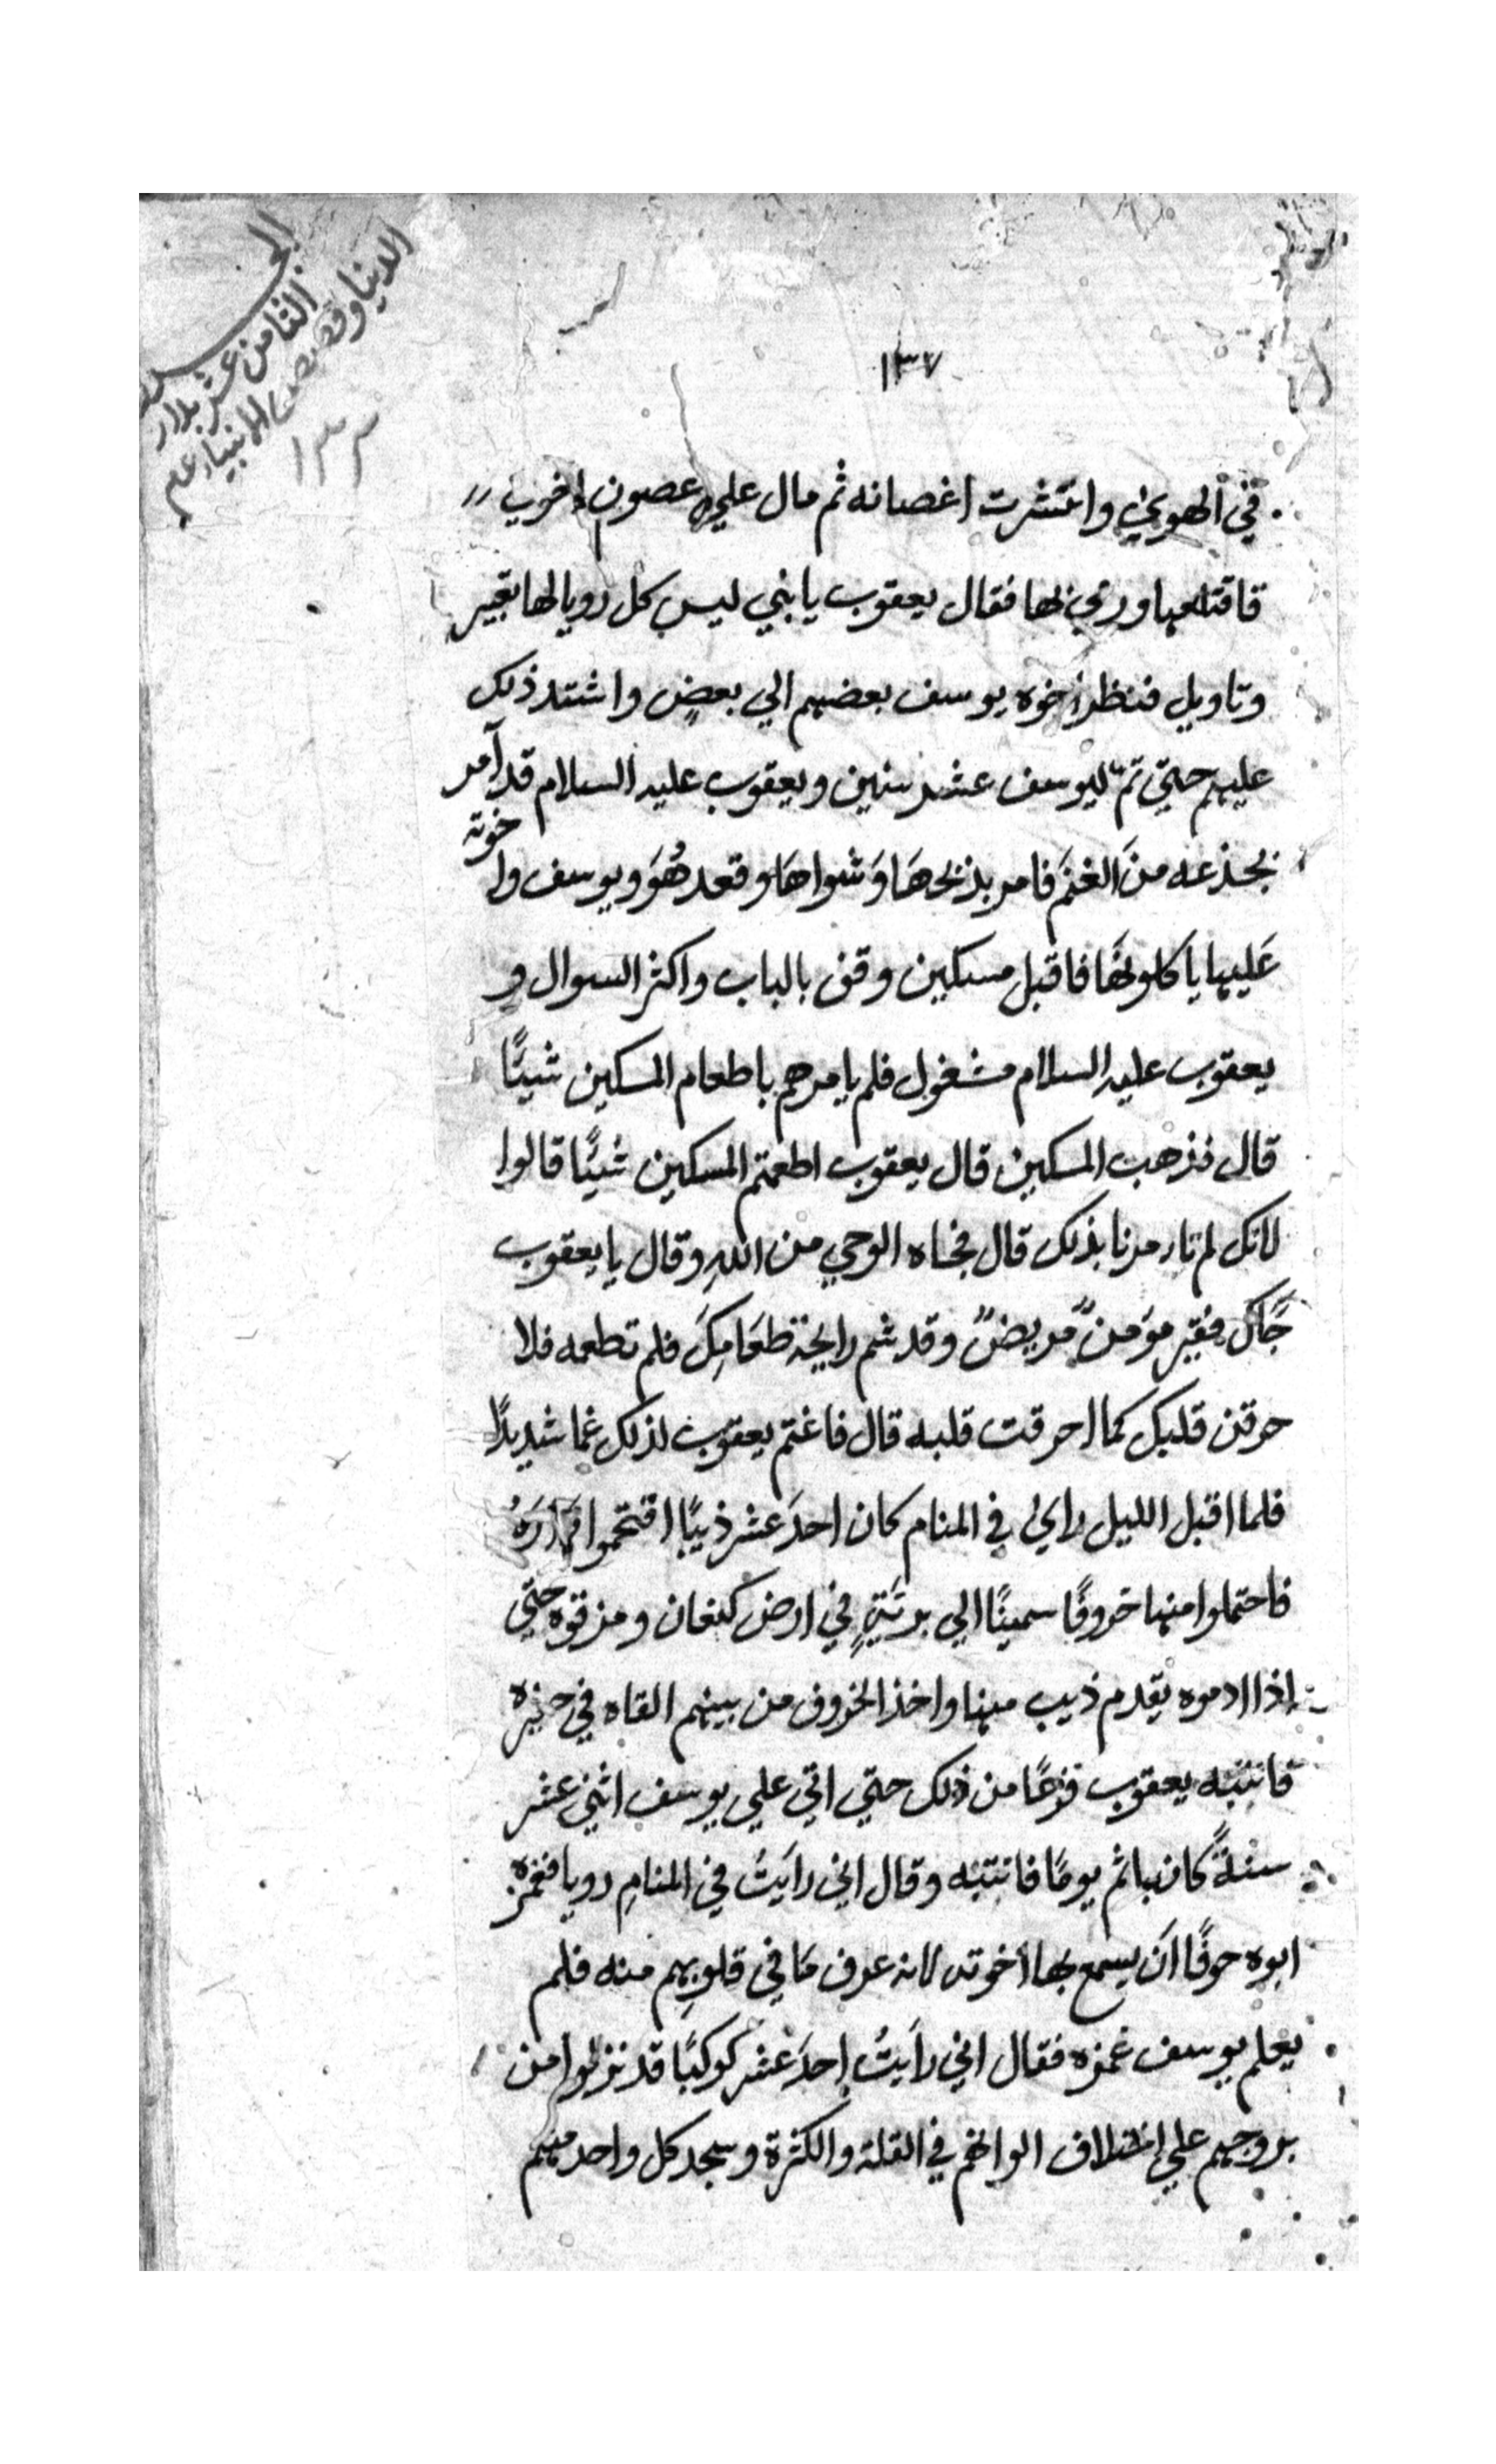 الجزء
الثامن عشر بدا
الدنيا وقصص الانبياء عم
١٣٣
١٣٧
في الهوي وانتشرت اغصانه ثم مال علي عصون اخوب
فاقتلعها ورمي بها فقال يعقوب يا بني ليس كل رويا لها تعبير
وتاويل فنظر اخوه يوسف بعضهم الي بعضٍ واشتد ذلك
عليهم حتي تم ليوسف عشر سنين ويعقوب عليه السلام قد آمر
بجذعه منَ الغنم فامر بذبحهَا وَشواهَا وقعد هُوَ ويوسف واخوته
عَليها ياكلونهَا فاقبل مسكين وقف بالباب واكثر السوال و
يعقوب عليه السلام مشغول فلم يامرهم باطعام المسكين شيئًا
قال فذهب المسكين قال يعقوب اطعمتم المسكين شيئًا قالوا
لانك لم تامرنا بذلك قال فجاه الوحي من اللهِ وقال يا يعقوب
جَاكَ فقير مؤمنٌ مريضٌ وقد شم رايحة طعَامِكَ فلم تطعمه فلا
حرقن قلبك كما احرقت قلبه قال فاغتم يعقوب لذلك غما شديدًا
فلما اقبل الليل راي في المنام كان احدَ عشر ذيبًا اقتحموا دَارَهُ
فاحتملوا منها خروفًا سمينًا الي بريّةٍ في ارض كنعان ومزقوه حتي
اذا ادموه يقدم ذيب منها واخذ الخروف من بينهم القاه في حفيره
فانتبه يعقوب فزعًا من ذلك حتي اتي علي يوسف اثني عشر
سنةً كان نائم يومًا فانتبه وقال اني رايَتُ في المنامِ رويا فغمزه
ابوه خوفًا اَن يسمع بها اخوته لانه عرف مَا في قلوبِهم منه فلم
يعلم يوسف غمزه فقال اني رايَتُ احدَ عشر كوكبًا قد نزلوا من
بروجهم علي اختلاف الوانهم في القلة والكثرة وسجد كل واحد منهم